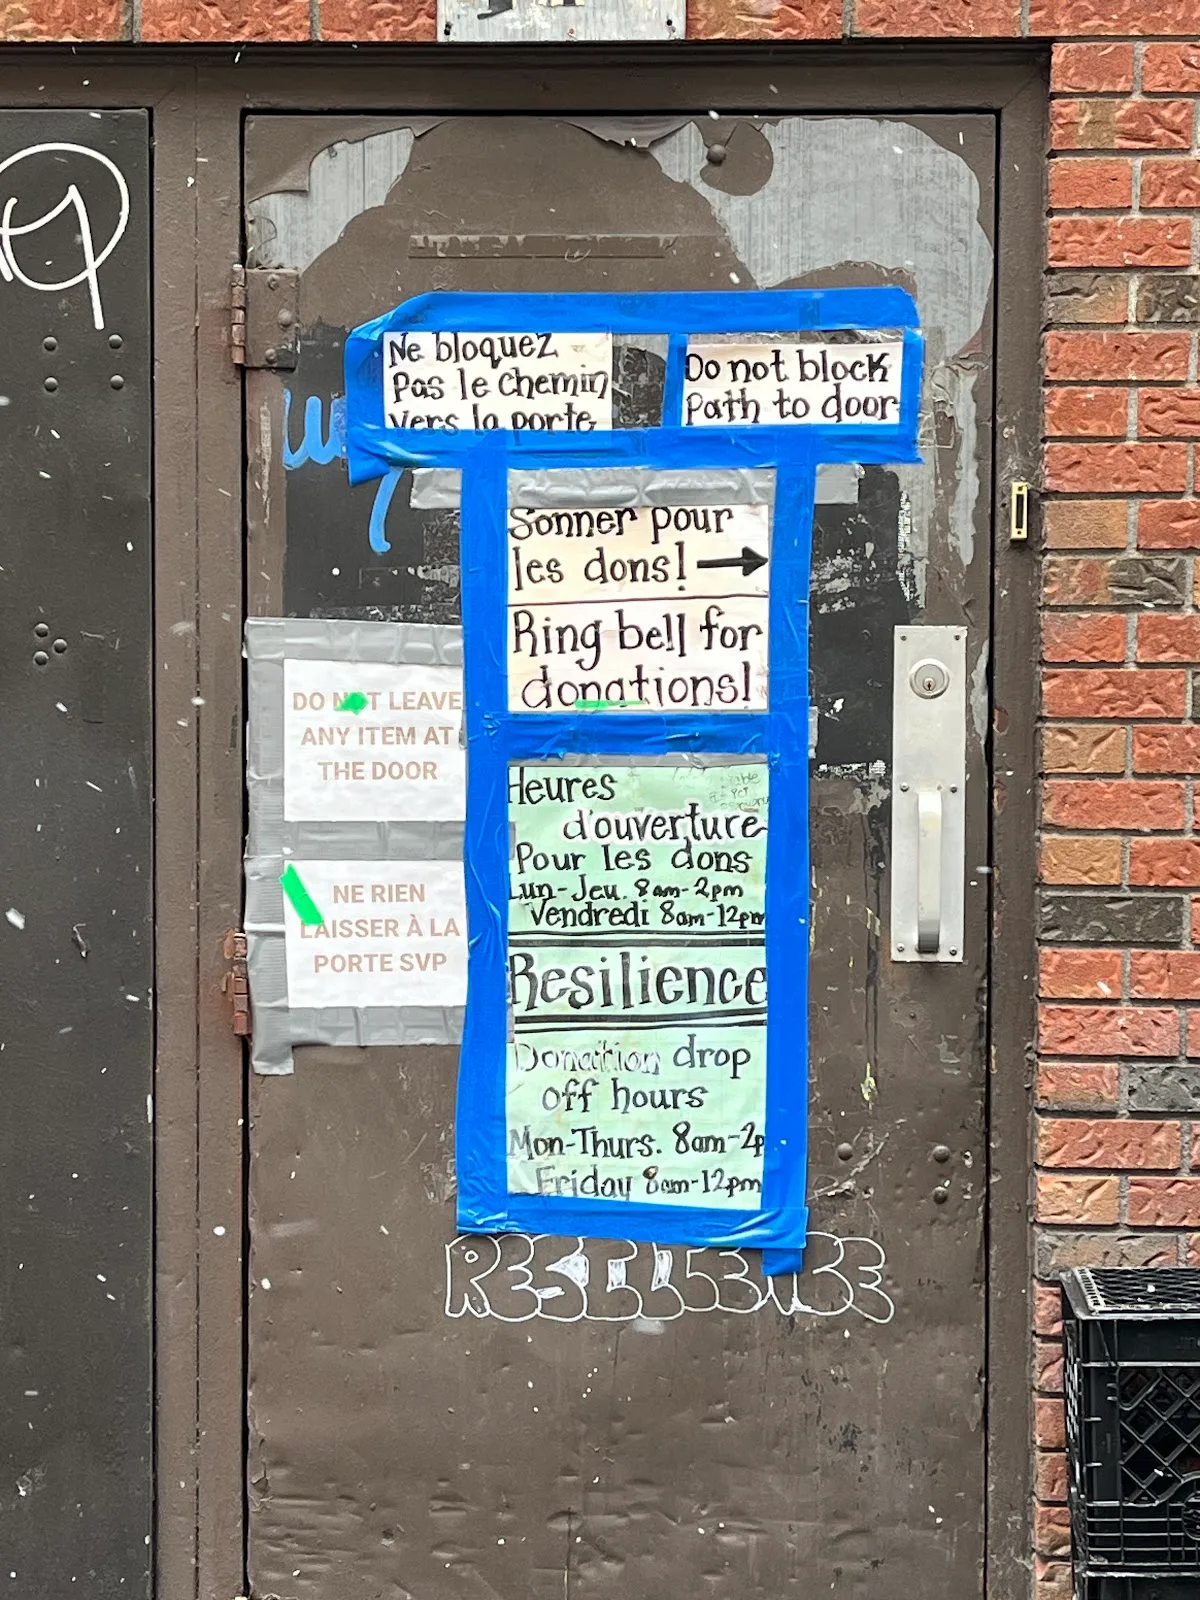 Ne bloquez
Pas le chemin
vers la porte
Do not block
Path to door
Sonner pour
les dons!
Ring bell for
donations!
DO NOT LEAVE
ANY ITEM AT
THE DOOR
NE RIEN
LAISSER À LA
PORTE SVP
Heures
d'ouverture
Pour les dons
Lun-Jeu. 8am-2pm
Vendredi 8am-12pm
Resilience
Donation drop
off hours
Mon-Thurs. 8am-2p
Friday 8am-12pm
RESILIENCE